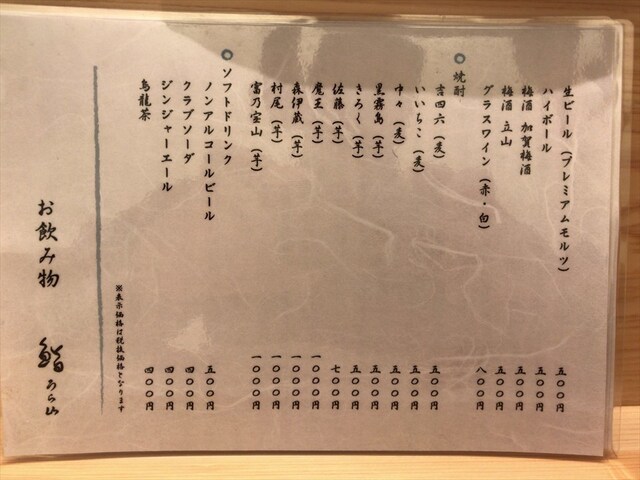 生ビール（プレミアムモルツ） 五〇〇円
ハイボール 五〇〇円
梅酒 加賀梅酒 五〇〇円
梅酒 立山 五〇〇円
グラスワイン（赤・白） 八〇〇円
焼酎
吉四六（麦） 五〇〇円
いいちこ（麦） 五〇〇円
中々（麦） 五〇〇円
黒霧島（芋） 五〇〇円
きろく（芋） 五〇〇円
佐藤（芋） 七〇〇円
魔王（芋） 一〇〇〇円
森伊蔵（芋） 一〇〇〇円
村尾（芋） 一〇〇〇円
富乃宝山（芋） 一〇〇〇円
ソフトドリンク
ノンアルコールビール 五〇〇円
クラブソーダ 四〇〇円
ジンジャーエール 四〇〇円
烏龍茶 四〇〇円
※表示価格は税抜価格となります
お飲み物 鮨 あら山